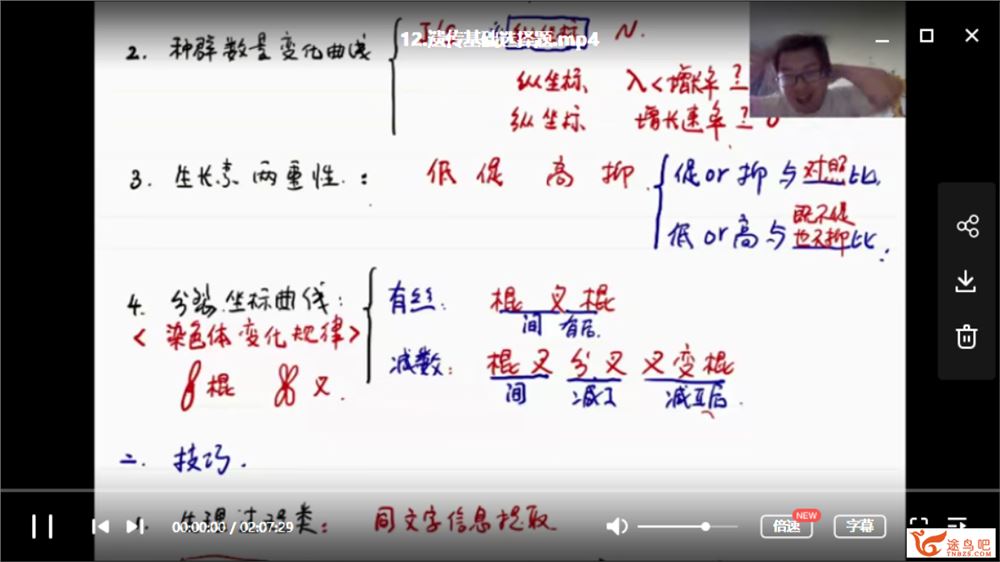 12.遗传基础选择题.mp4
2. 种群数量变化曲线
N.
纵坐标 λ<增长率?
纵坐标 增长速率? 0
3. 生长素两重性: 低促 高抑. 促or抑与对照比.
低or高与既不促也不抑比.
4. 分裂坐标曲线: 有丝: 棍 叉 棍
间 有后.
<染色体变化规律>
减数: 棍 叉 分 叉 叉 变 棍
间 减I 减II后.
棍 叉.
二. 技巧.
同文字信息提取.
00:00:00 / 02:07:29
倍速 NEW 字幕
途鸟吧
TNBZS.COM